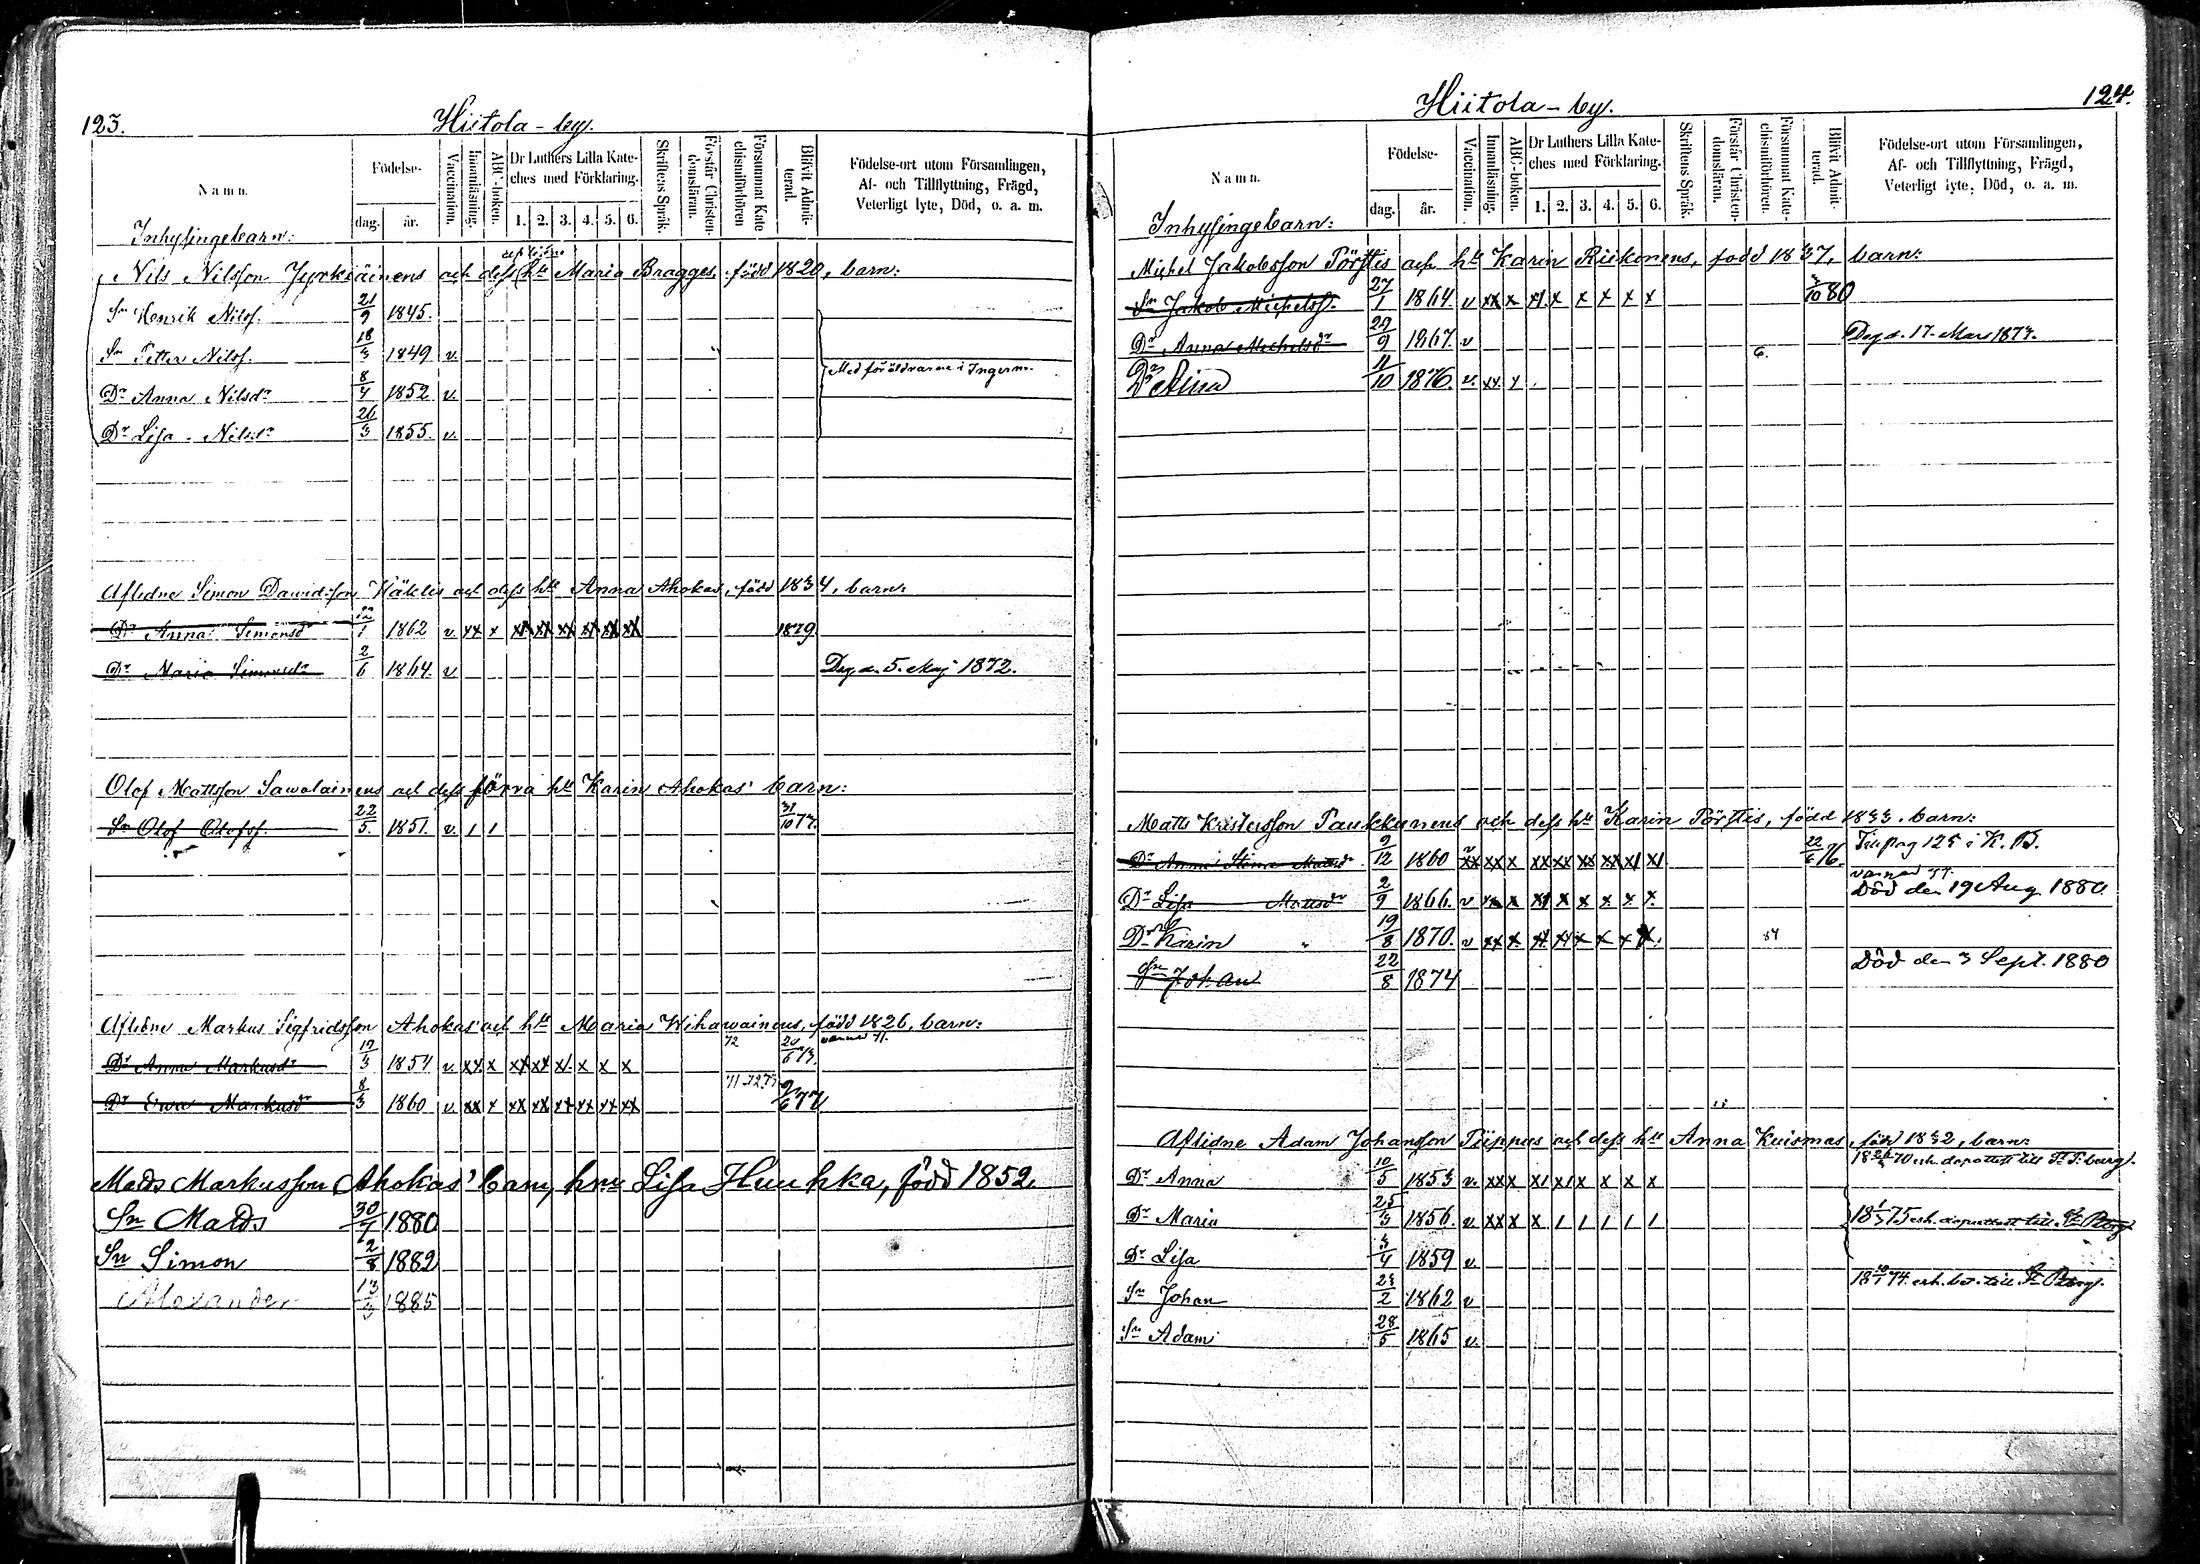 123.
Hiitola-by.
Namn.
Födelse-
dag.
år.
Vaccination.
Innanläsning.
ABC-boken.
Dr Luthers Lilla Kate-
ches med Förklaring.
1. 2. 3. 4. 5. 6.
Skriftens Språk.
Förstår Christen-
domsläran.
Försummat Kate
chismiförhören
Blifvit Admit-
terad.
Födelse-ort utom Församlingen,
Af- och Tillflyttning, Frägd,
Veterligt lyte, Död, o. a. m.
Inhysingebarn:
Nils Nilsson Jyrkiäinens och dess hu Maria Bragges, född 1820, barn:
Sn Henrik Nilss. 21/9 1845.
Sn Petter Nilss. 18/3 1849 v.
Med föräldrarne i Ingerm.
Dr Anna Nilsdr 8/4 1852 v.
Dr Lisa Nilsdr 26/3 1855. v.
Aflidne Simon Davidsson Käkles och dess hu Anna Ahokas, född 1834, barn:
Dr Anna Simonsdr 1862 v. xx x xx xx xx xx xx xx 1879.
Dr Maria Simonsdr 2/6 1864. v Dog d. 5. Maj 1872.
Olof Mattsson Sawolainens och dess förra hu Karin Ahokas' barn:
Sn Olof Olofss. 22/5. 1851. v. 1 1 31/10 77.
Aflidne Markus Sigfridsson Ahokas och hu Maria Wihawainens, född 1826, barn:
Dr Anna Markusdr 12/3 1854 v. xx x xx xx x x x x 72 varnad 71.
Dr Ewa Markusdr 8/3 1860 v. xx x xx xx xx xx xx xx 71 72 73 9/6 77
Mads Markusson Ahokas' barn, hru Lisa Huuhka, född 1852.
Sn Mads 30/7 1880
Sn Simon 2/8 1882
Alexander 13/3 1885
124.
Hiitola-by.
Namn.
Födelse-
dag.
år.
Vaccination.
Innanläsning.
ABC-boken.
Dr Luthers Lilla Kate-
ches med Förklaring.
1. 2. 3. 4. 5. 6.
Skriftens Språk.
Förstår Christen-
domsläran.
Försummat Kate-
chismiförhören.
Blifvit Admit-
terad.
Födelse-ort utom Församlingen,
Af- och Tillflyttning, Frägd,
Veterligt lyte, Död, o. a. m.
Inhysingebarn:
Michel Jakobsson Törstis och hu Karin Riikonens, född 1837, barn:
Sn Jakob Michelss. 27/1 1864. v xx x x1 x x x x x 3/10 80
Dr Anna Michelsdr 29/9 1867. v 6. Dog d. 17. Mars 1873.
Dr Stina 11/10 1876. v. xx x
Matts Kristersson Paukkunens och dess hu Karin Törstis, född 1833. barn:
Dr Anna Stina Mattsdr 9/12 1860 xx xx x xx xx xx xx x1 x1 22/6 76. Till pag 125 i K. B.
varnad 77.
Dr Lisa Mattsdr 2/9 1866. v xx x x1 x x x x x. Död den 19 Aug 1880
Dr Karin " 19/8 1870. v xx x xx xx x x x x. 84
Sn Johan 22/8 1874 Död den 3 Sept. 1880
Aflidne Adam Johansson Tiippus och dess hu Anna Kuismas, född 1832, barn:
Dr Anna 10/5 1853 v. xx x x1 x1 x x x x
Dr Maria 25/3 1856. v. xx x x x 1 1 1 1 1
Dr Lisa 3/4 1859 v.
Sn Johan 23/2 1862 v
Sn Adam 28/5 1865 v.